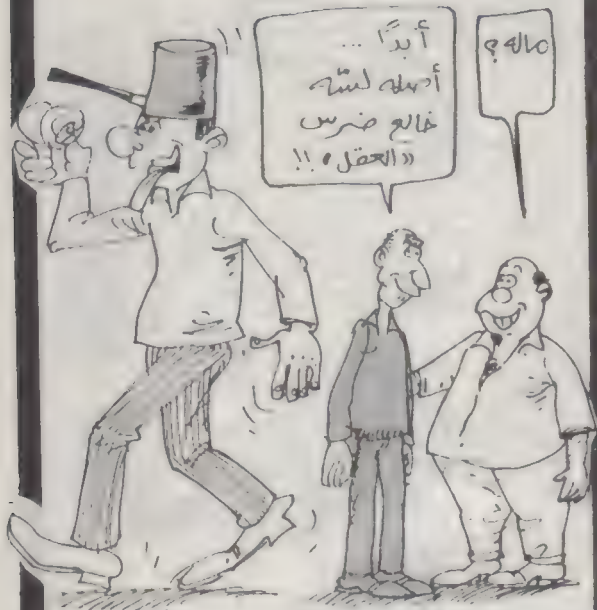 ماله؟
أبدًا ...
أصله لسّه
خالع ضرس
«العقل» !!